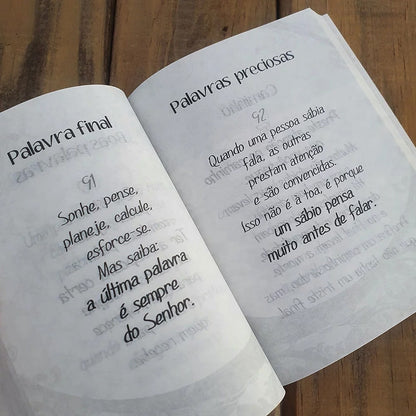 Palavra final
91
Sonhe, pense,
planeje, calcule,
esforce-se.
Mas saiba:
a última palavra
é sempre
do Senhor.
Palavras preciosas
92
Quando uma pessoa sábia
fala, as outras
prestam atenção
e são convencidas.
Isso não é à toa, é porque
um sábio pensa
muito antes de falar.